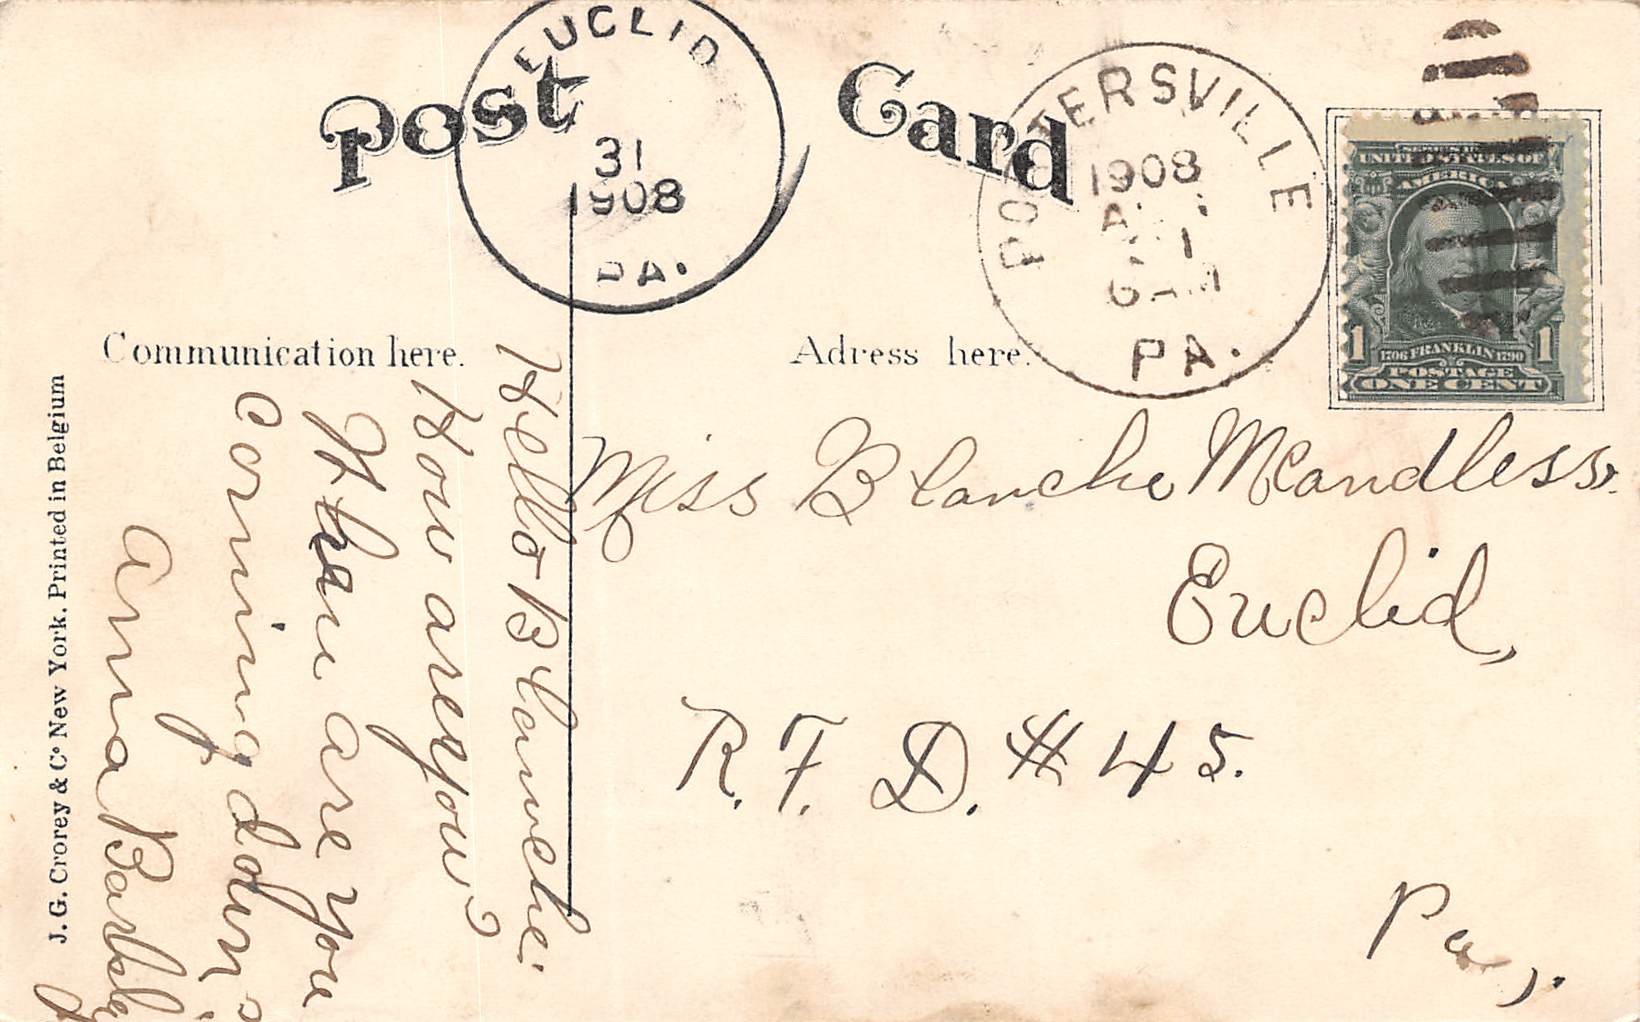 Post Card
EUCLID
31
1908
PA.
PORTERSVILLE
1908
PA.
SERIES 1902
UNITED STATES OF
AMERICA
1 1706 FRANKLIN 1790 1
POSTAGE
ONE CENT
Communication here.
Adress here.
Hello Blanche.
How are you?
When are you
coming down
Anna
Miss Blanche McCandless.
Euclid,
R. F. D. # 45.
Pa,.
J. G. Crorey & Co New York. Printed in Belgium